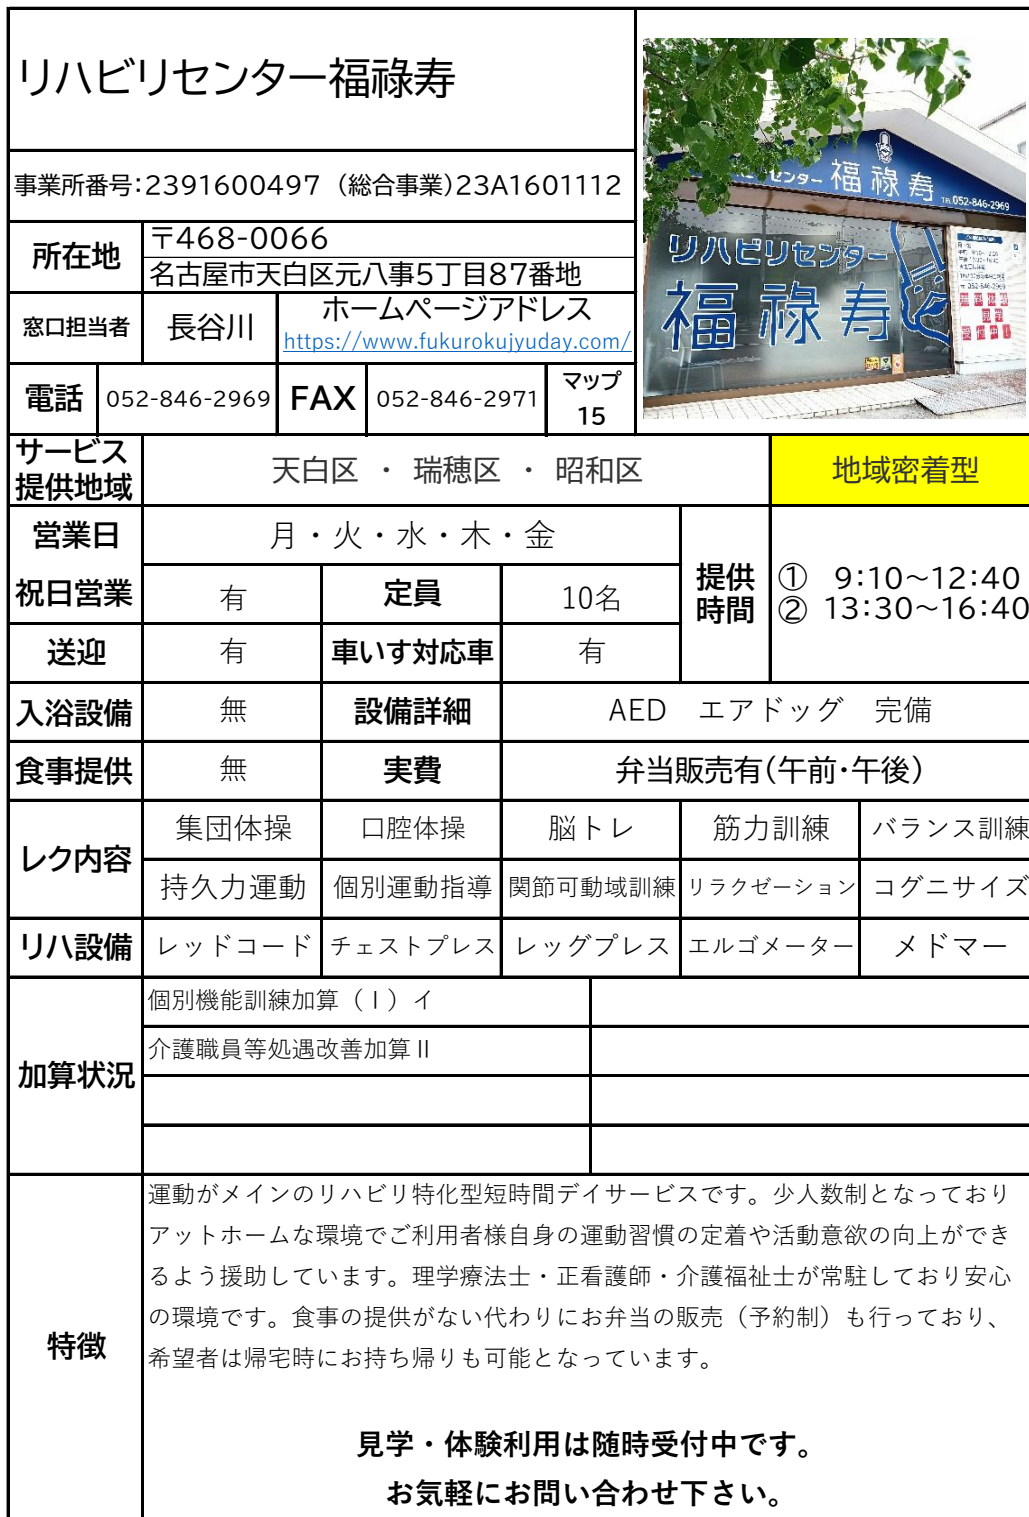 リハビリセンター福祿寿
事業所番号:2391600497 (総合事業)23A1601112
所在地
〒468-0066
名古屋市天白区元八事5丁目87番地
窓口担当者
長谷川
ホームページアドレス
https://www.fukurokujyuday.com/
電話 052-846-2969 FAX 052-846-2971
マップ
15
センター 福祿寿
TEL 052-846-2969
リハビリセンター
福祿寿
サービス
提供地域
天白区 ・ 瑞穂区 ・ 昭和区
地域密着型
営業日 月・火・水・木・金
祝日営業 有 定員 10名
提供
時間
① 9:10~12:40
② 13:30~16:40
送迎 有 車いす対応車 有
入浴設備 無 設備詳細 AED エアドッグ 完備
食事提供 無 実費 弁当販売有(午前・午後)
レク内容
集団体操 口腔体操 脳トレ 筋力訓練 バランス訓練
持久力運動 個別運動指導 関節可動域訓練 リラクゼーション コグニサイズ
リハ設備 レッドコード チェストプレス レッグプレス エルゴメーター メドマー
加算状況
個別機能訓練加算(Ⅰ)イ
介護職員等処遇改善加算Ⅱ
特徴
運動がメインのリハビリ特化型短時間デイサービスです。少人数制となっており
アットホームな環境でご利用者様自身の運動習慣の定着や活動意欲の向上ができ
るよう援助しています。理学療法士・正看護師・介護福祉士が常駐しており安心
の環境です。食事の提供がない代わりにお弁当の販売（予約制）も行っており、
希望者は帰宅時にお持ち帰りも可能となっています。
見学・体験利用は随時受付中です。
お気軽にお問い合わせ下さい。